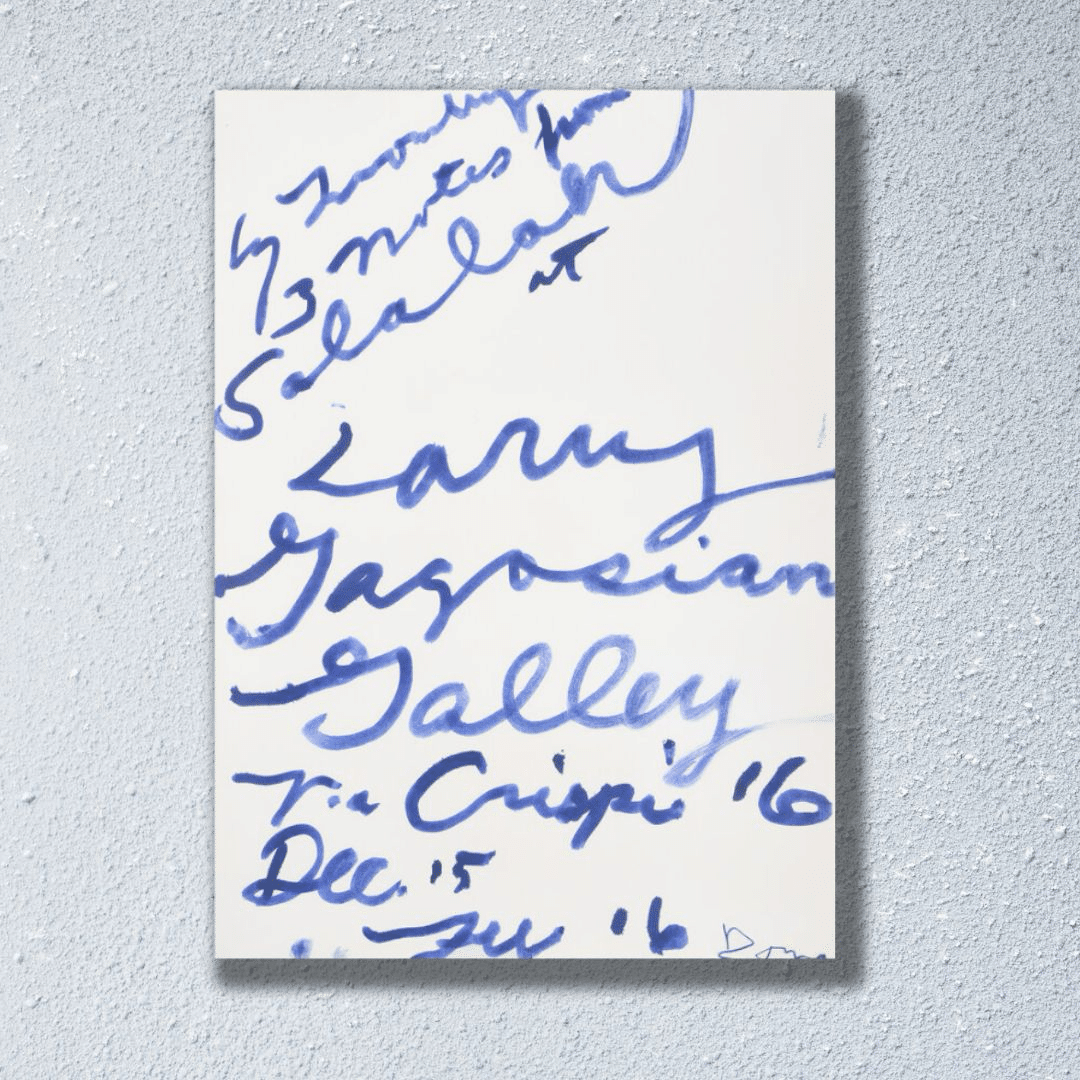 by Twombly
3 Notes from
Salalah
at
Larry
Gagosian
Gallery
Via Crispi '16
Dec. '15
Feb '16